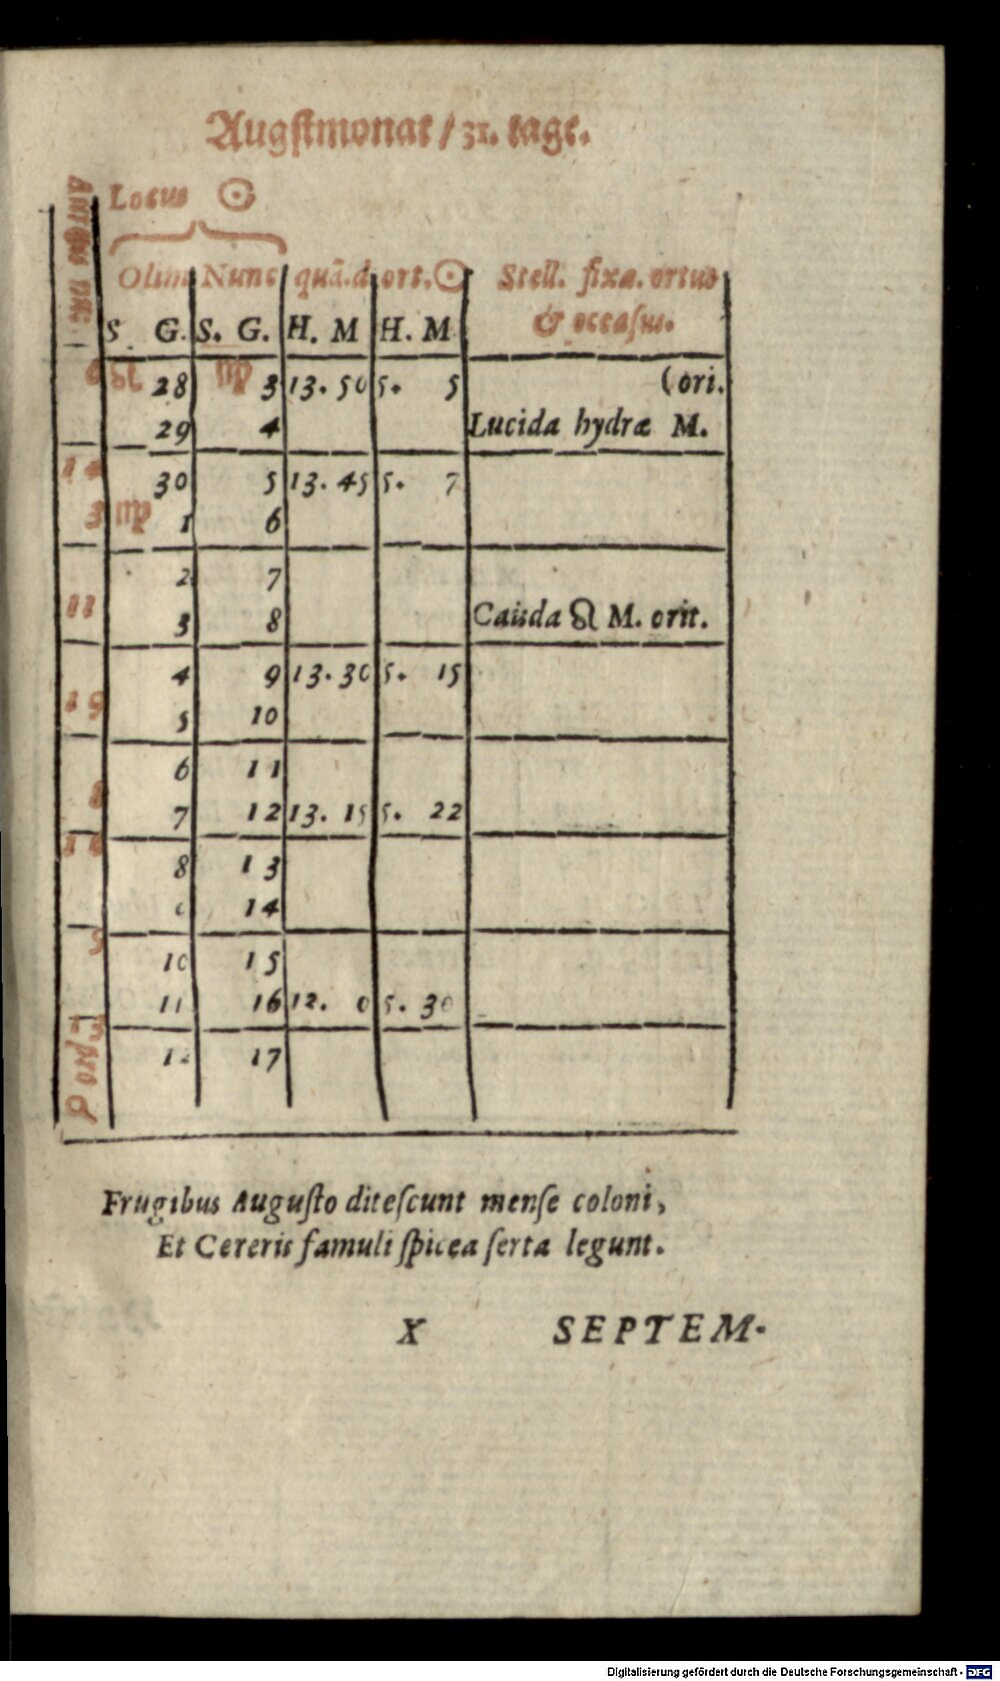 Augstmonat / 31. tage.
Locus ☉
Olim Nunc quã.d. ort.☉ Stell. fixa. ortus
& occasus.
S G. S. G. H. M H. M
28 ♍ 3 13. 50 5. 5 (ori.
29 4 Lucida hydræ M.
14 30 5 13. 45 5. 7
3 ♍ 1 6
2 7
11 3 8 Cauda ♌ M. orit.
4 9 13. 30 5. 15
19 5 10
6 11
8 7 12 13. 15 5. 22
8 13
14
5 10 15
11 16 12. 0 5. 30
17
Frugibus Augusto ditescunt mense coloni,
Et Cereris famuli spicea serta legunt.
X SEPTEM-
Digitalisierung gefördert durch die Deutsche Forschungsgemeinschaft - DFG